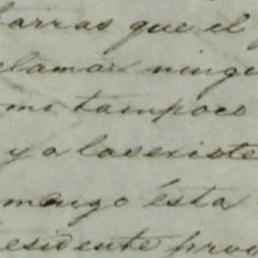 barras que el
clamar ningu
mo tampoco
y a las existe
mengo ésta
esidente prov